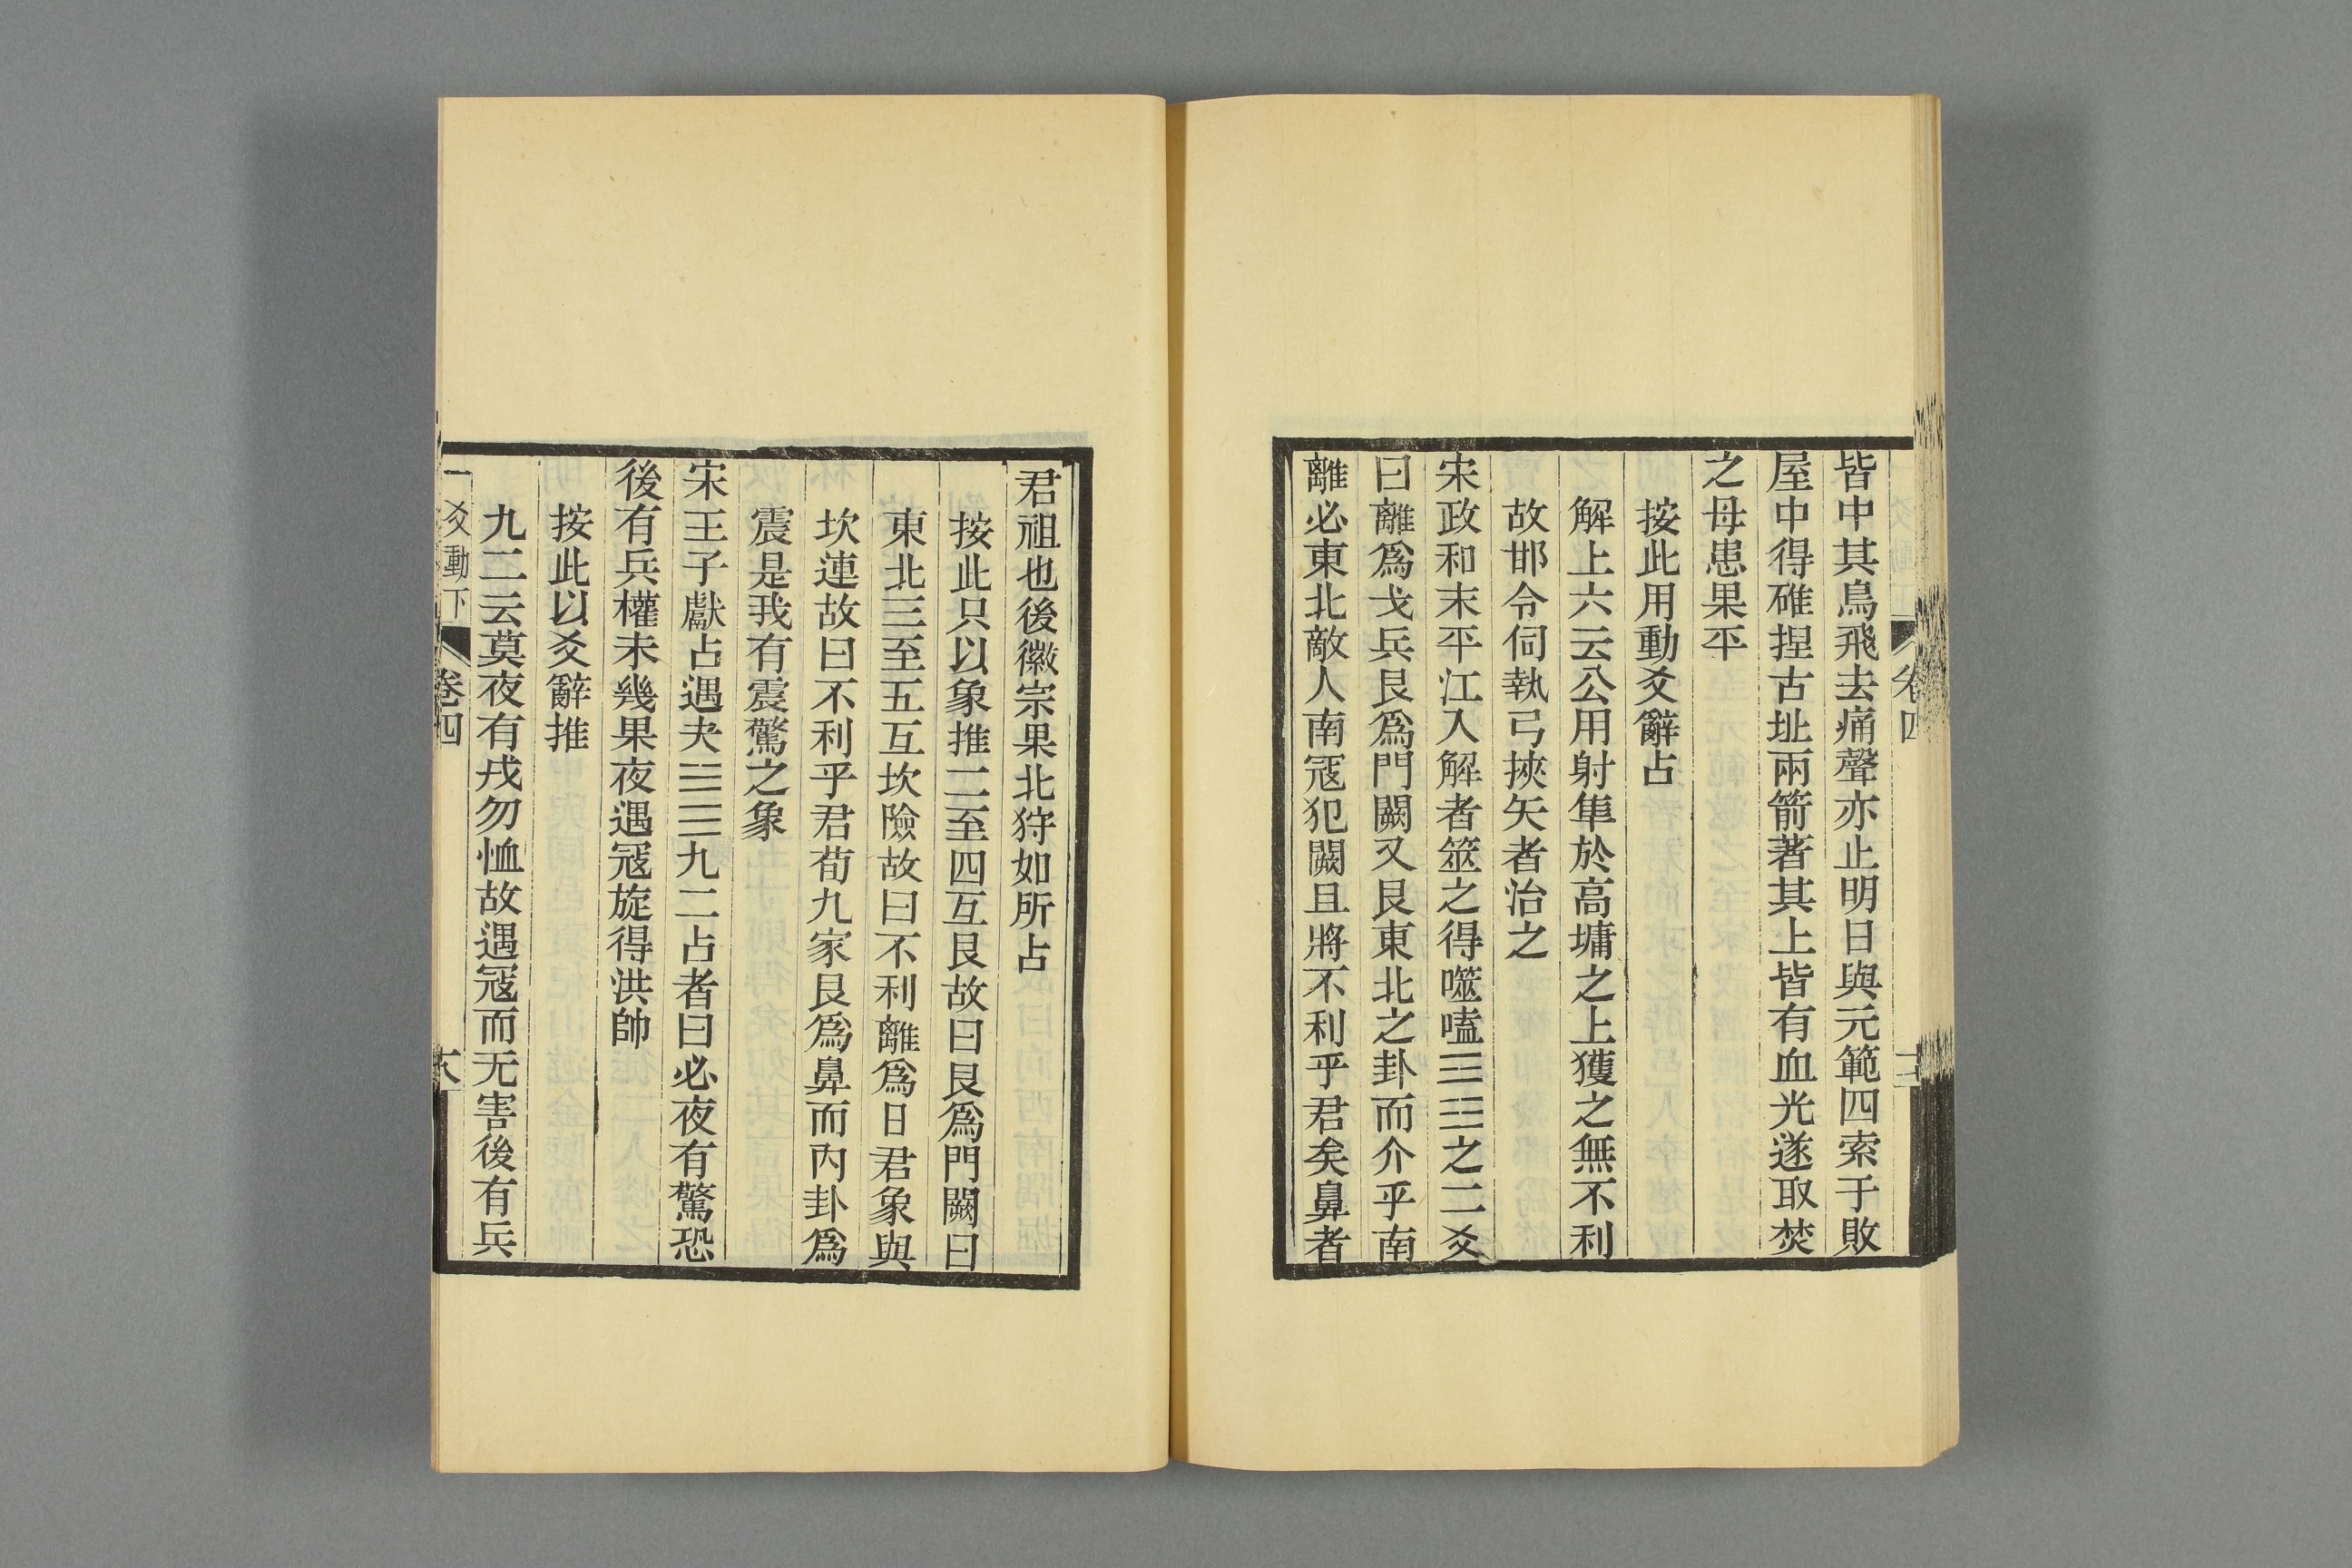 卷四
皆中其鳥飛去痛聲亦止明日與元範四索于敗
屋中得碓捏古址兩箭著其上皆有血光遂取焚
之母患果平
按此用動爻辭占
解上六云公用射隼於高墉之上獲之無不利
故邯令伺執弓挾矢者治之
宋政和末平江入解者筮之得噬嗑☲☳之二爻
曰離爲戈兵艮爲門闕又艮東北之卦而介乎南
離必東北敵人南冦犯闕且將不利乎君矣鼻者
君祖也後徽宗果北狩如所占
按此只以象推二至四互艮故曰艮爲門闕曰
東北三至五互坎險故曰不利離爲日君象與
坎連故曰不利乎君荀九家艮爲鼻而內卦爲
震是我有震驚之象
宋王子獻占遇夬☱☰九二占者曰必夜有驚恐
後有兵權未幾果夜遇冦旋得洪帥
按此以爻辭推
九二云莫夜有戎勿恤故遇冦而无害後有兵
一爻動下 卷四